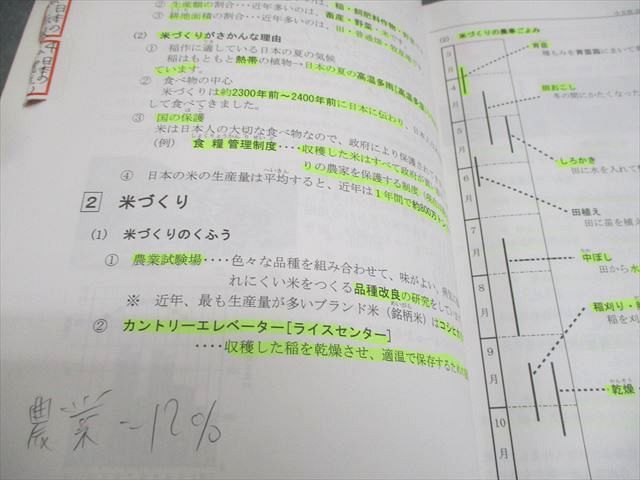 日本の
4 日本の
② 生産額の割合‥‥近年多いのは、稲・飼肥料作物・野菜
③ 耕地面積の割合‥‥近年多いのは、田・普通畑・牧草地
畜産・野菜・米です。
(2) 米づくりがさかんな理由
① 稲作に適している日本の夏の気候
稲はもともと熱帯の植物→日本の夏の高温多雨[高温多
ています。
② 食べ物の中心
米づくりは約2300年前～2400年前に日本に伝わり、日本人
して食べてきました。
③ 国の保護
米は日本人の大切な食べ物なので、政府により保護され
しょくりょうかんりせいど
(例) 食糧管理制度‥‥収穫した米はすべて政府が買い
りの農家を保護する制度
へいきん
④ 日本の米の生産量は平均すると、近年は1年間で約800万トン
2 米づくり
(1) 米づくりのくふう
① 農業試験場‥‥色々な品種を組み合わせて、味がよい、病気
れにくい米をつくる品種改良の研究をしてい
※ 近年、最も生産量が多いブランド米(銘柄米)はコシヒカ
② カントリーエレベーター[ライスセンター]
‥‥収穫した稲を乾燥させ、適温で保存するため
農業 - 12%
(2) 米づくりの農事ごよみ
3月
4月
5月
6月
7月
8月
9月
10月
苗床
種もみを育苗箱にまいて
田おこし
冬の間にかたくなった
しろかき
田に水を入れて
田植え
田に苗を植え
中ぼし
田から水
稲刈り・
稲を刈
かんそう
乾燥